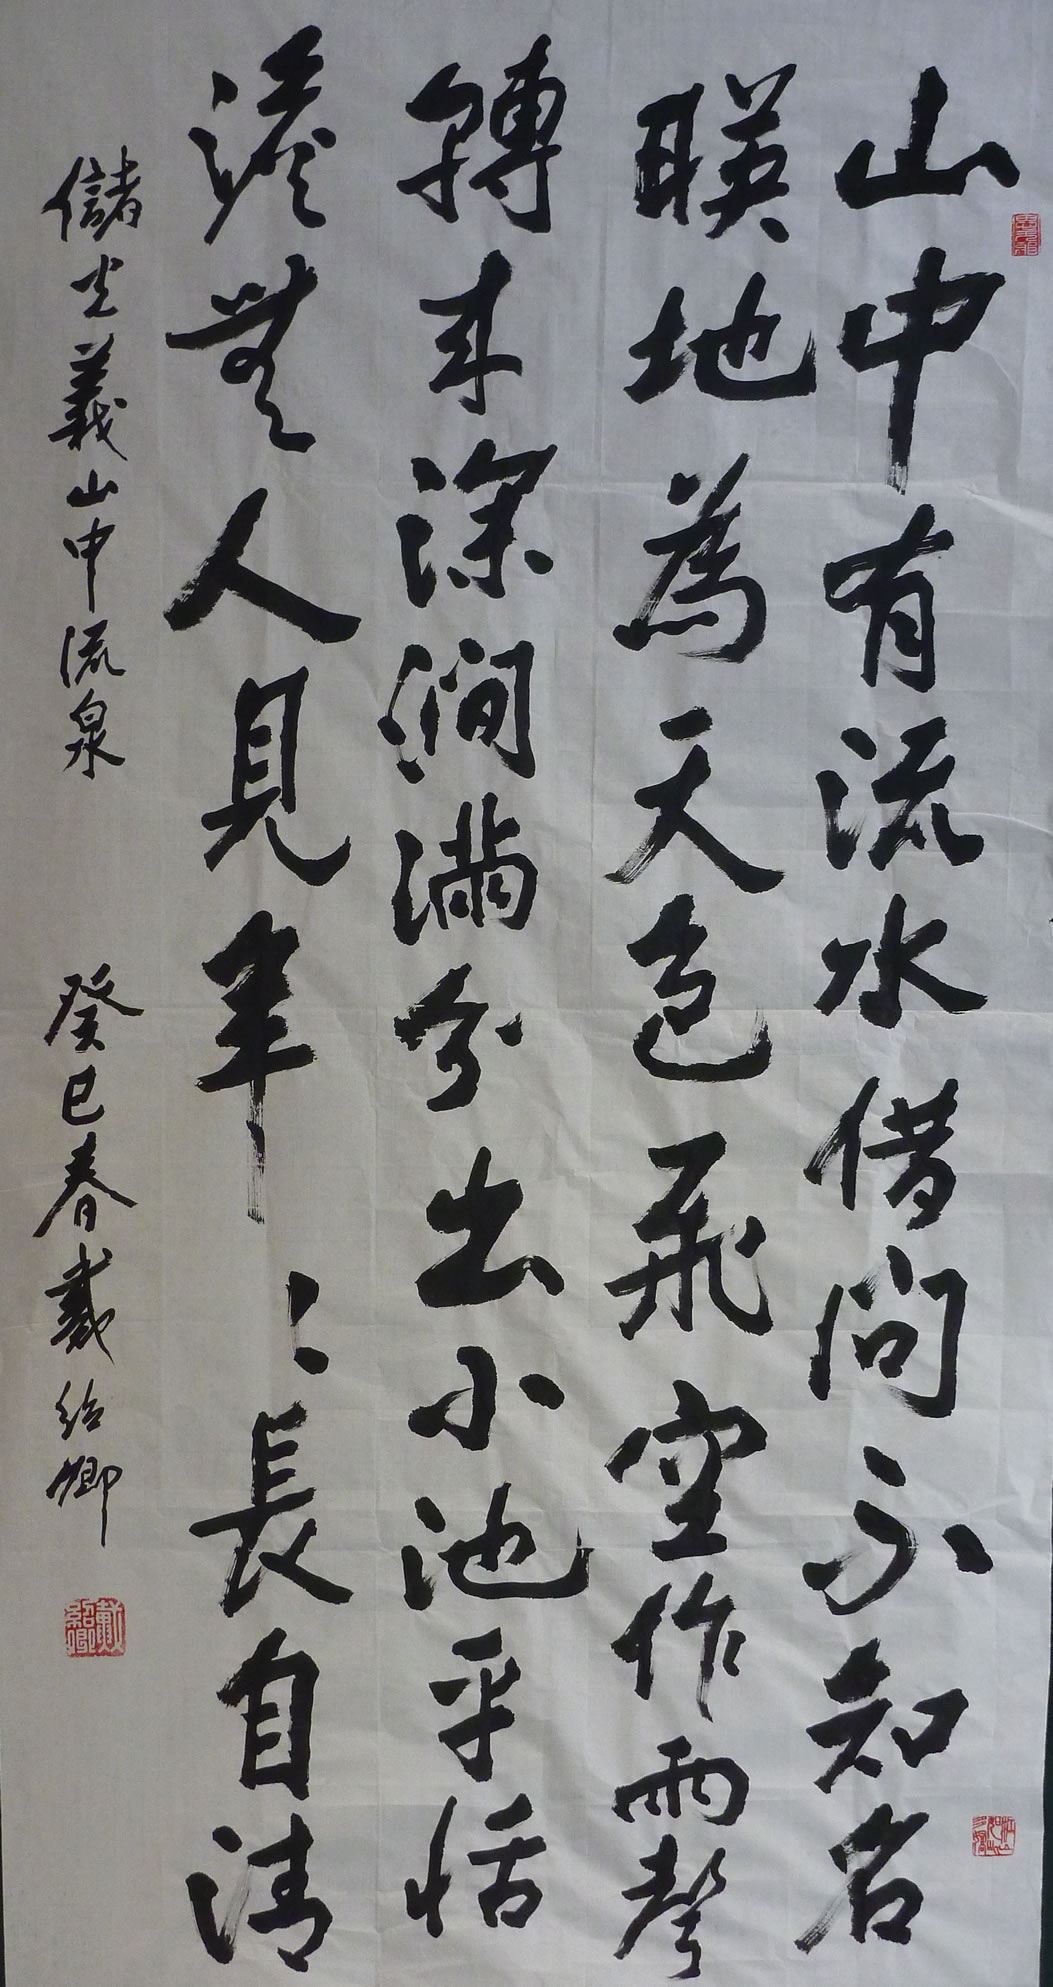 山中有流水借问不知名
暎地為天色飛空作雨聲
轉来深澗满分出小池平恬
澹無人見年〻長自清
儲光羲山中流泉
癸巳春戴紹卿
戴紹卿